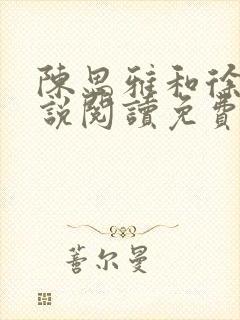 陳思雅和徐
說閱讀免費
蓍尔曼